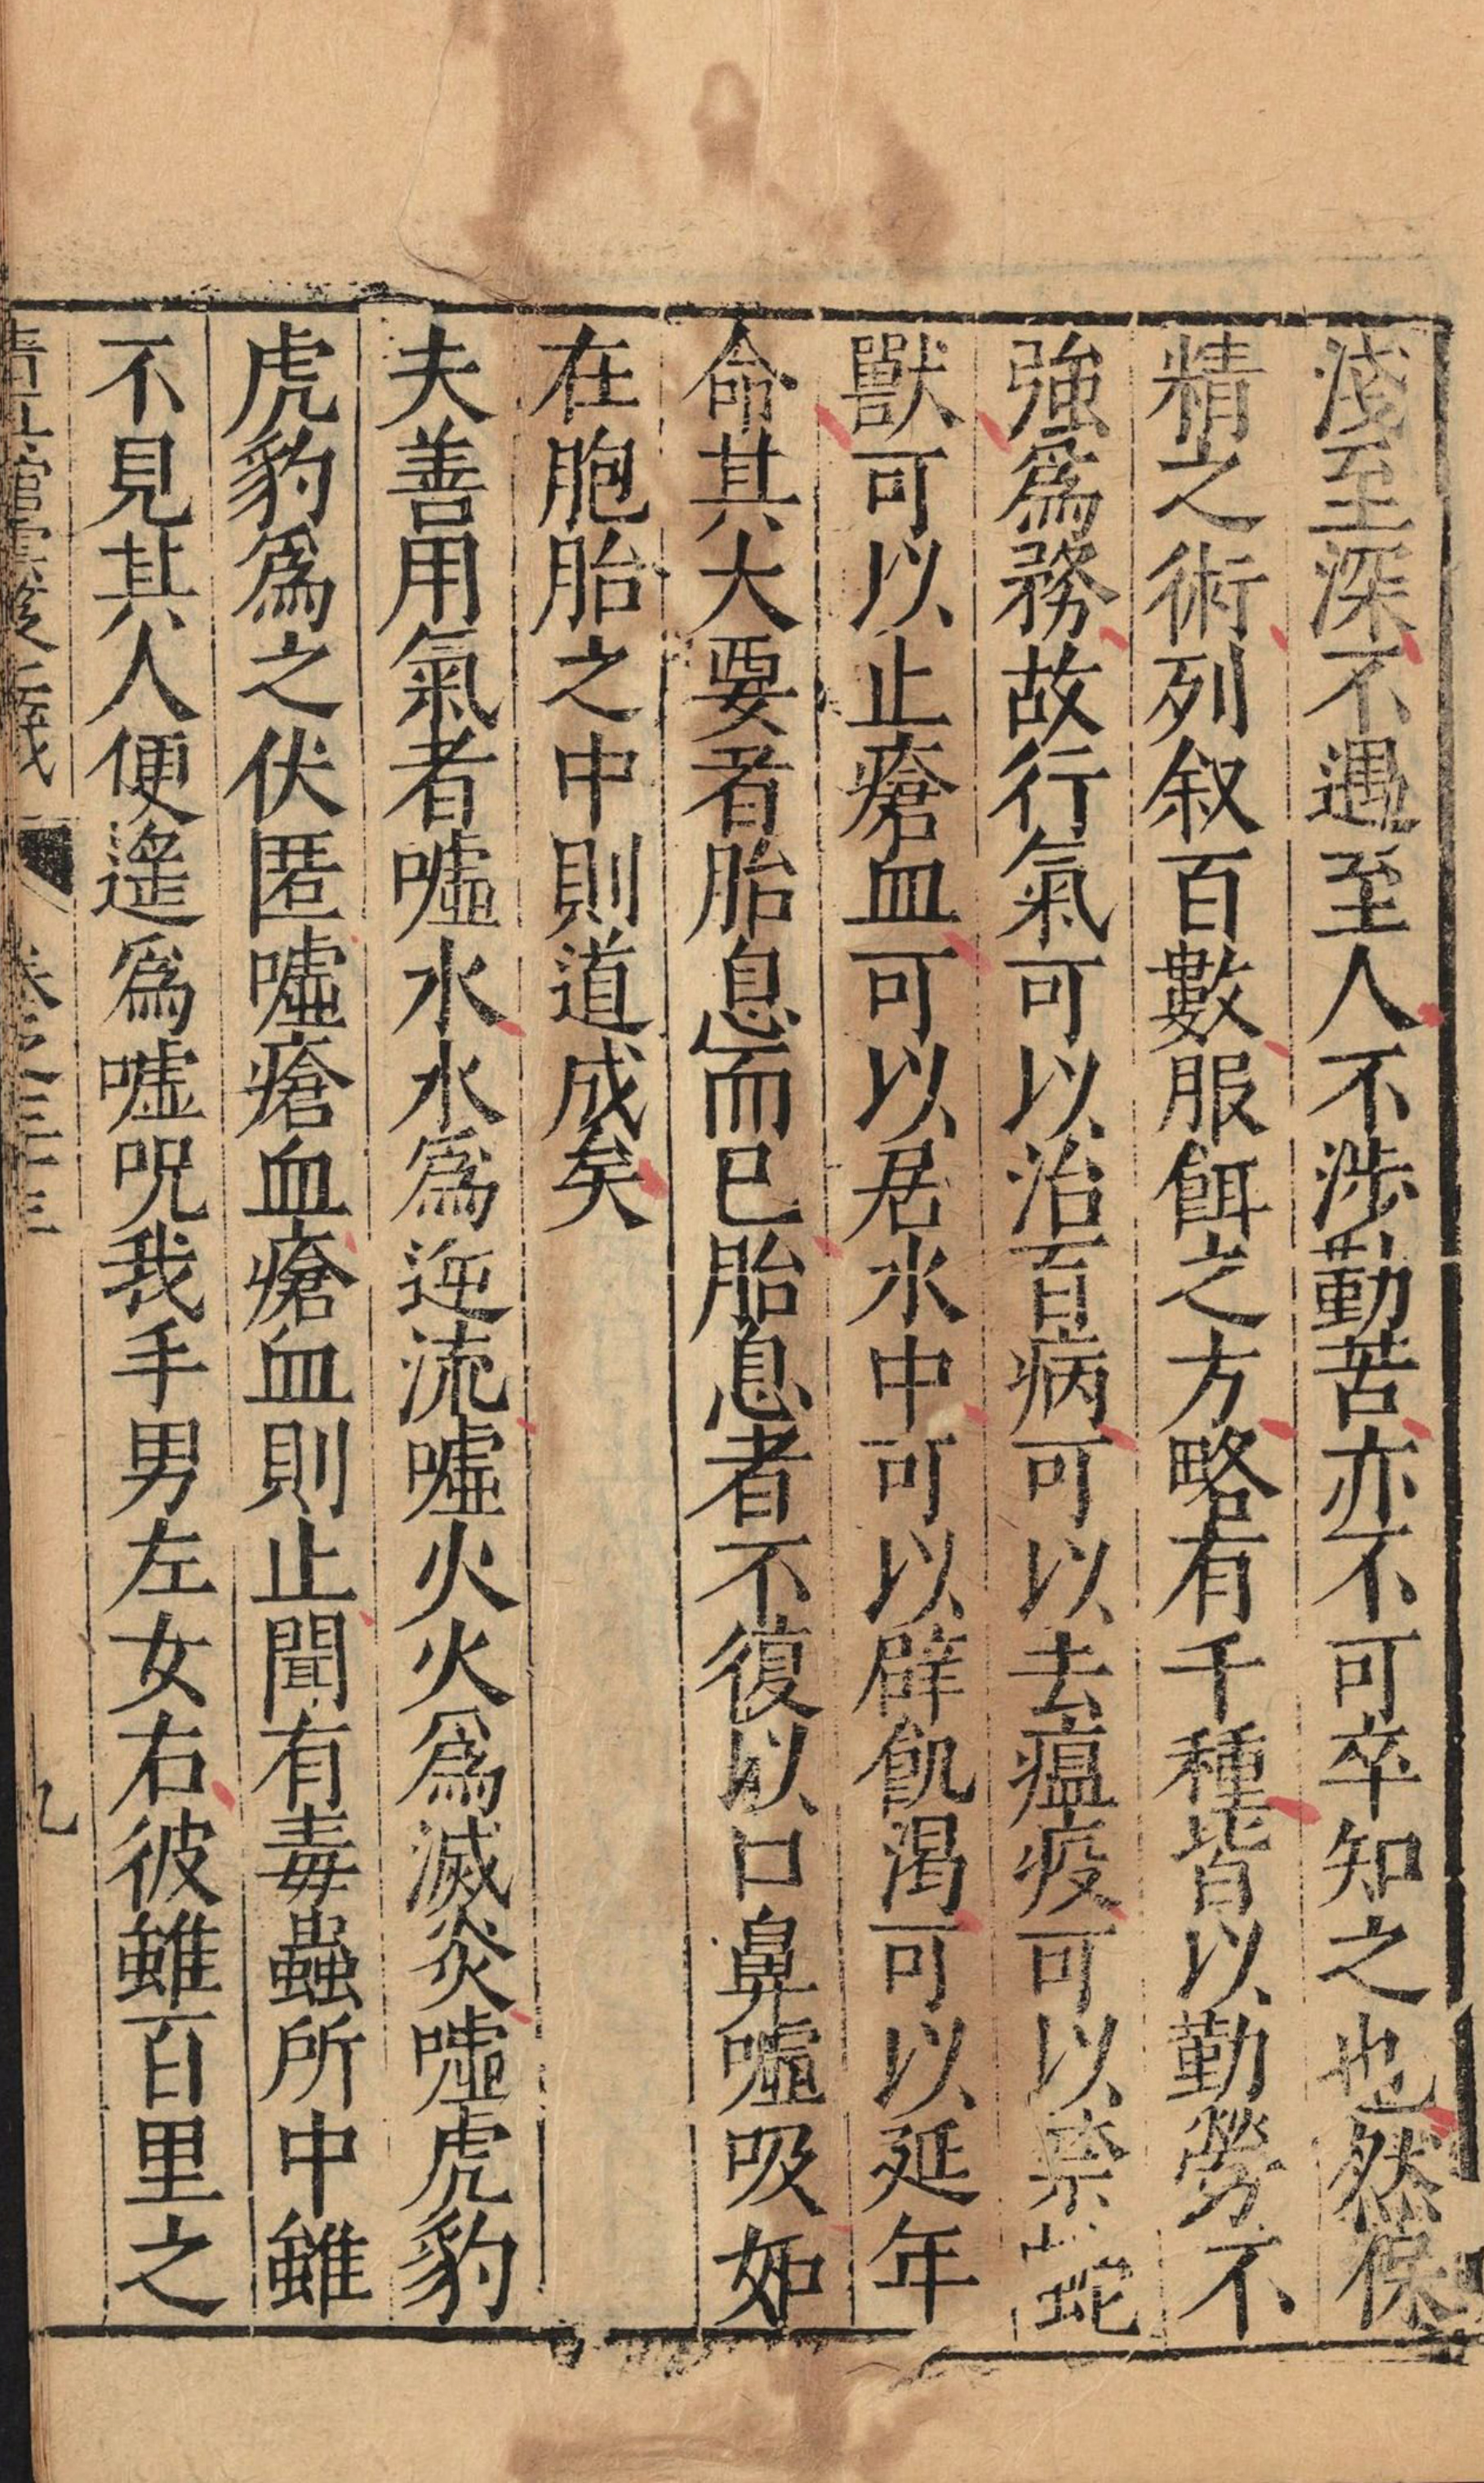 淺至深不遇至人不渉勤苦亦不可卒知之也然保
精之術列叙百數服餌之方略有千種皆以勤勞不
強爲務故行氣可以治百病可以去瘟疫可以禁蛇
獸可以止瘡血可以居水中可以辟飢渴可以延年
命其大要者胎息而已胎息者不復以口鼻噓吸如
在胞胎之中則道成矣
夫善用氣者噓水水爲逆流噓火火爲滅炎噓虎豹
虎豹爲之伏匿噓瘡血瘡血則止聞有毒蟲所中雖
不見其人便遙爲噓呪我手男左女右彼雖百里之
卷之三十三
九